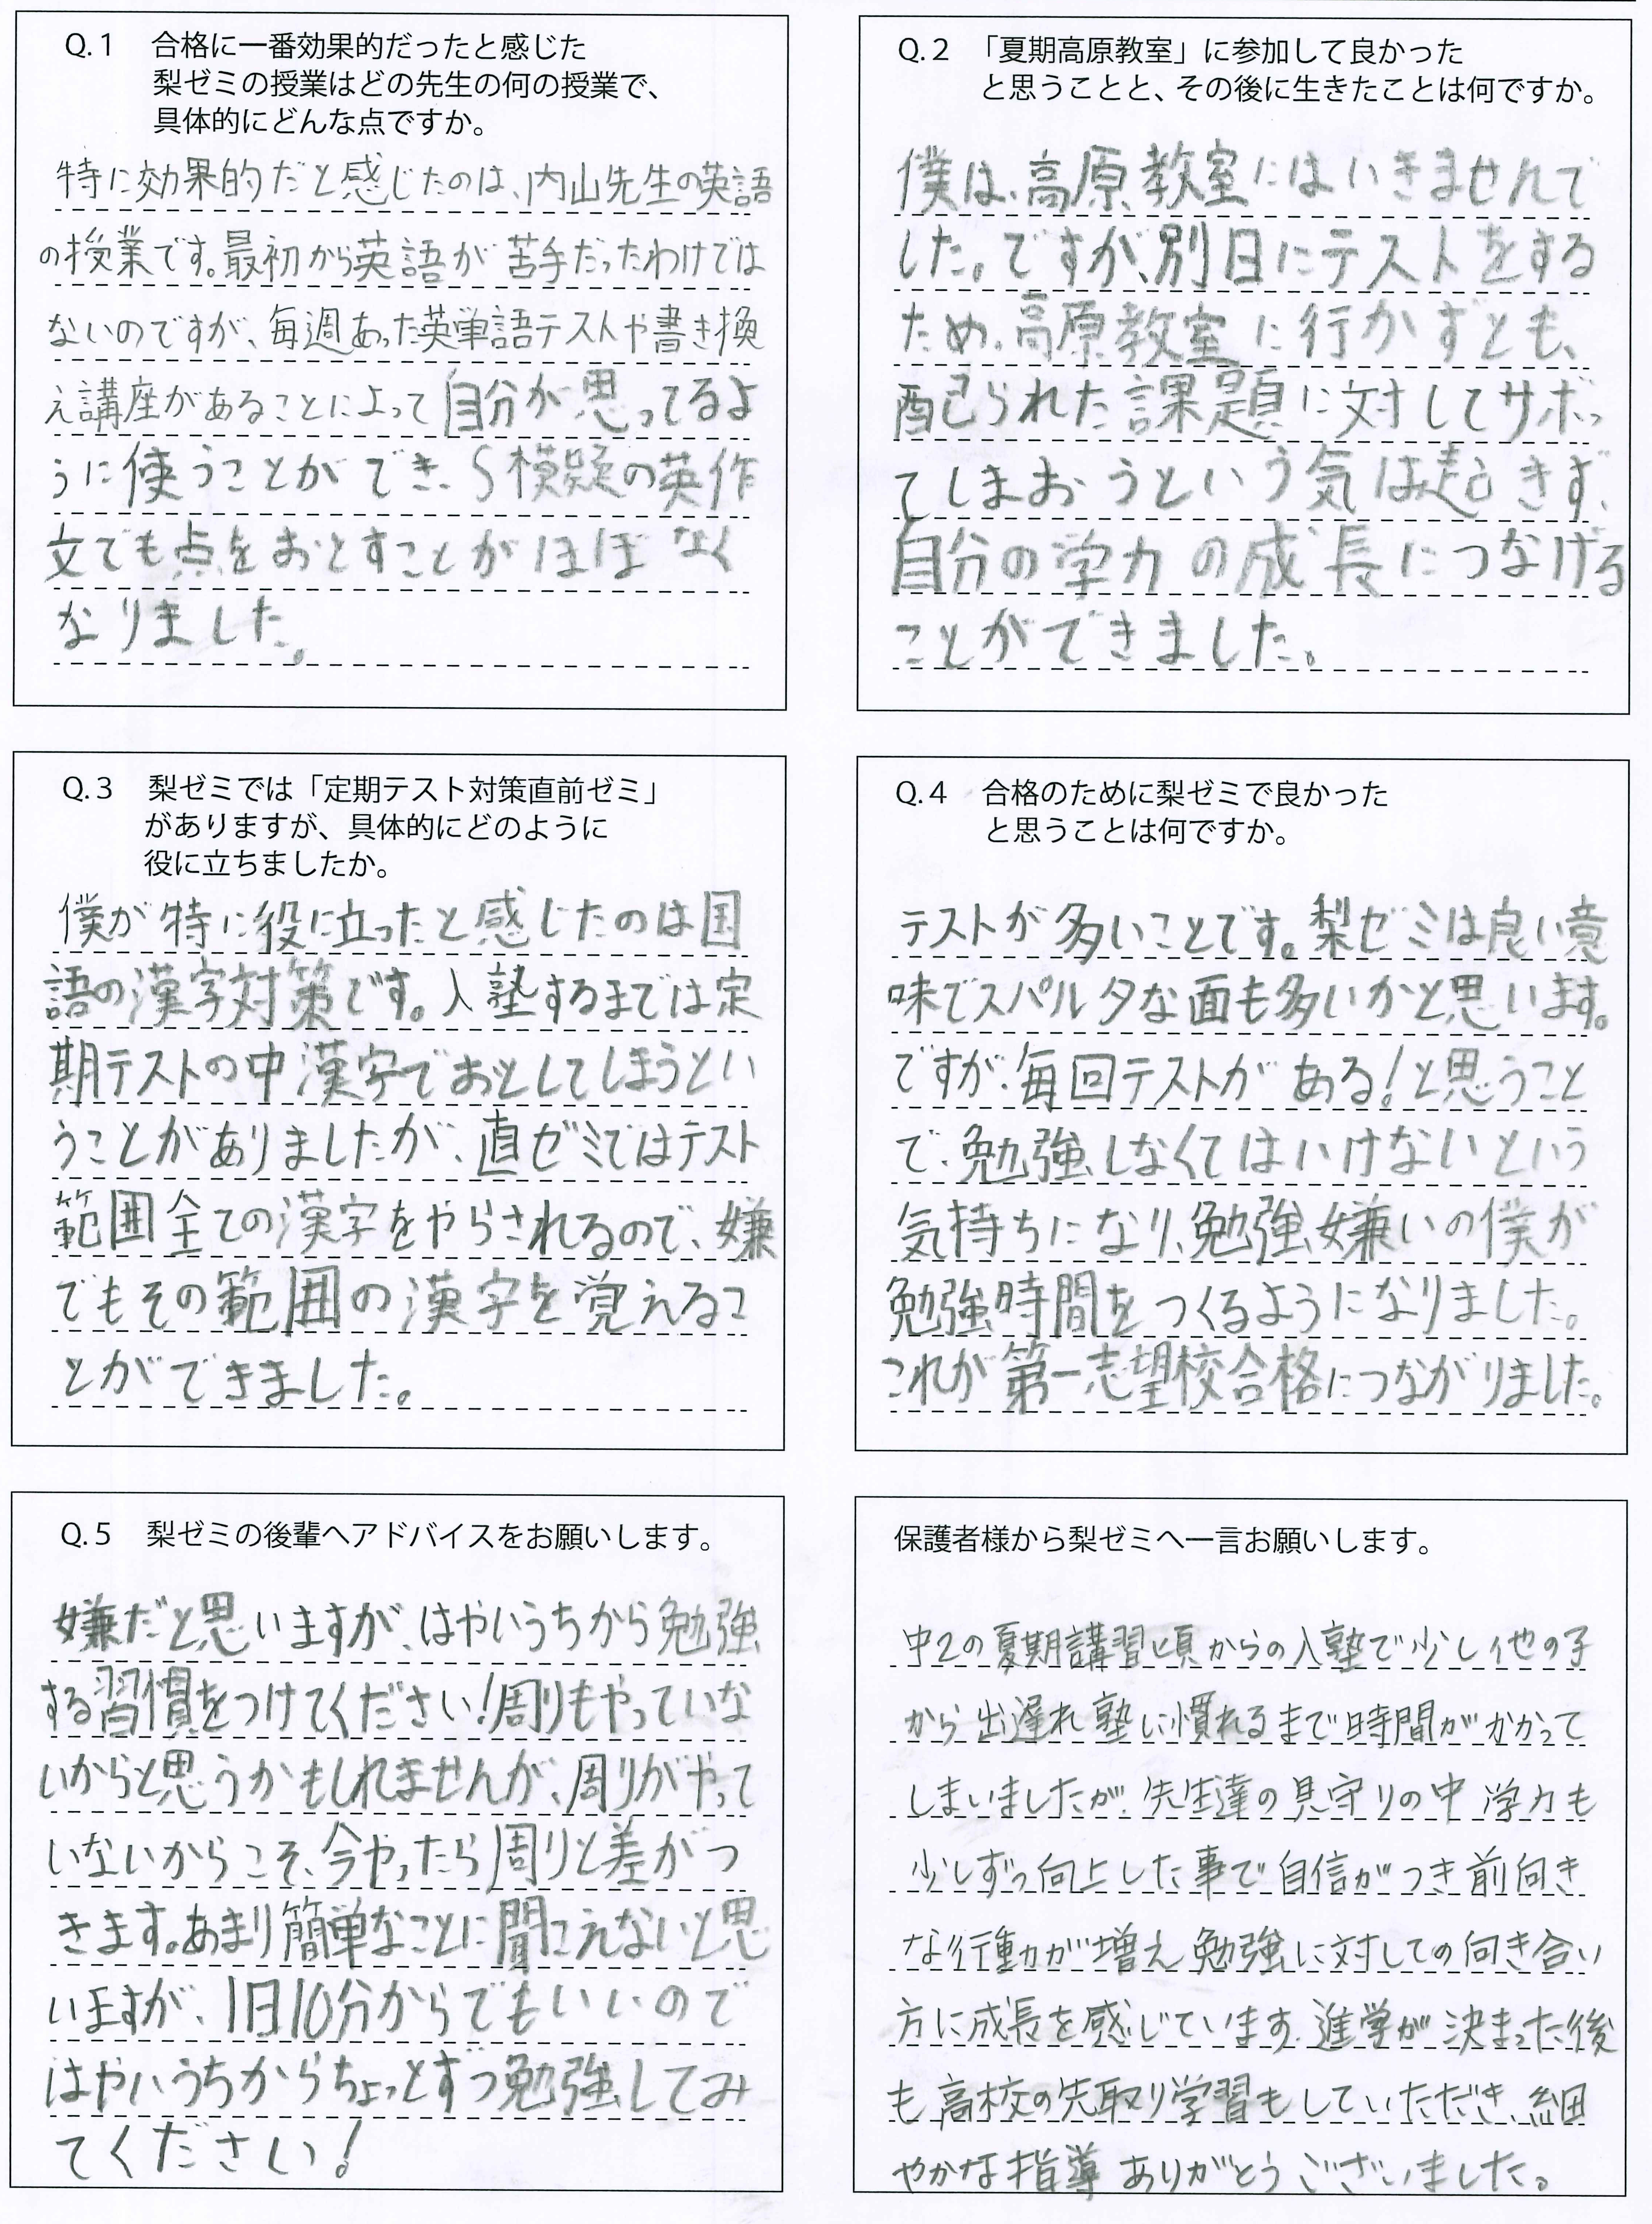 Q.1 合格に一番効果的だったと感じた
梨ゼミの授業はどの先生の何の授業で、
具体的にどんな点ですか。
特に効果的だと感じたのは、内山先生の英語
の授業です。最初から英語が苦手だったわけでは
ないのですが、毎週あった英単語テストや書き換
え講座があることによって自分が思ってるよ
うに使うことができ、S模擬の英作
文でも点をおとすことがほぼなく
なりました。
Q.2 「夏期高原教室」に参加して良かった
と思うことと、その後に生きたことは何ですか。
僕は、高原教室にはいきませんで
した。ですが、別日にテストをする
ため、高原教室に行かずとも、
配られた課題に対してサボっ
てしまおうという気は起きず、
自分の学力の成長につなげる
ことができました。
Q.3 梨ゼミでは「定期テスト対策直前ゼミ」
がありますが、具体的にどのように
役に立ちましたか。
僕が特に役に立ったと感じたのは国
語の漢字対策です。入塾するまでは定
期テストの中漢字でおとしてしまうとい
うことがありましたが、直ゼミではテスト
範囲全ての漢字をやらされるので、嫌
でもその範囲の漢字を覚えるこ
とができました。
Q.4 合格のために梨ゼミで良かった
と思うことは何ですか。
テストが多いことです。梨ゼミは良い意
味でスパルタな面も多いかと思います。
ですが、毎回テストがある!と思うこと
で、勉強しなくてはいけないという
気持ちになり、勉強嫌いの僕が
勉強時間をつくるようになりました。
これが第一志望校合格につながりました。
Q.5 梨ゼミの後輩へアドバイスをお願いします。
嫌だと思いますが、はやいうちから勉強
する習慣をつけてください!周りもやっていな
いからと思うかもしれませんが、周りがやって
いないからこそ、今やったら周りと差がつ
きます。あまり簡単なことに聞こえないと思
いますが、1日10分からでもいいので
はやいうちからちょっとずつ勉強してみ
てください!
保護者様から梨ゼミへ一言お願いします。
中2の夏期講習頃からの入塾で少し他の子
から出遅れ塾に慣れるまで時間がかかって
しまいましたが、先生達の見守りの中学力も
少しずつ向上した事で自信がつき前向き
な行動が増え勉強に対しての向き合い
方に成長を感じています。進学が決まった後
も高校の先取り学習もしていただき、細
やかな指導ありがとうございました。